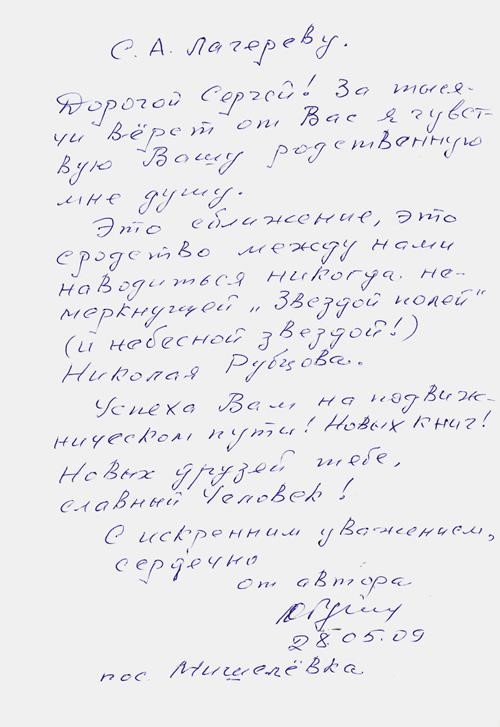 С. А. Лагереву.
Дорогой Сергей! За тыся-
чи вёрст от Вас я чувст-
вую Вашу родственную
мне душу.
Это сближение, это
сродство между нами
наводиться никогда не-
меркнущей „Звездой полей"
(и небесной звездой!)
Николая Рубцова.
Успеха Вам на подвиж-
ническом пути! Новых книг!
Новых друзей тебе,
славный Человек!
С искренним уважением,
сердечно
от автора
28.05.09
пос. Мишелёвка